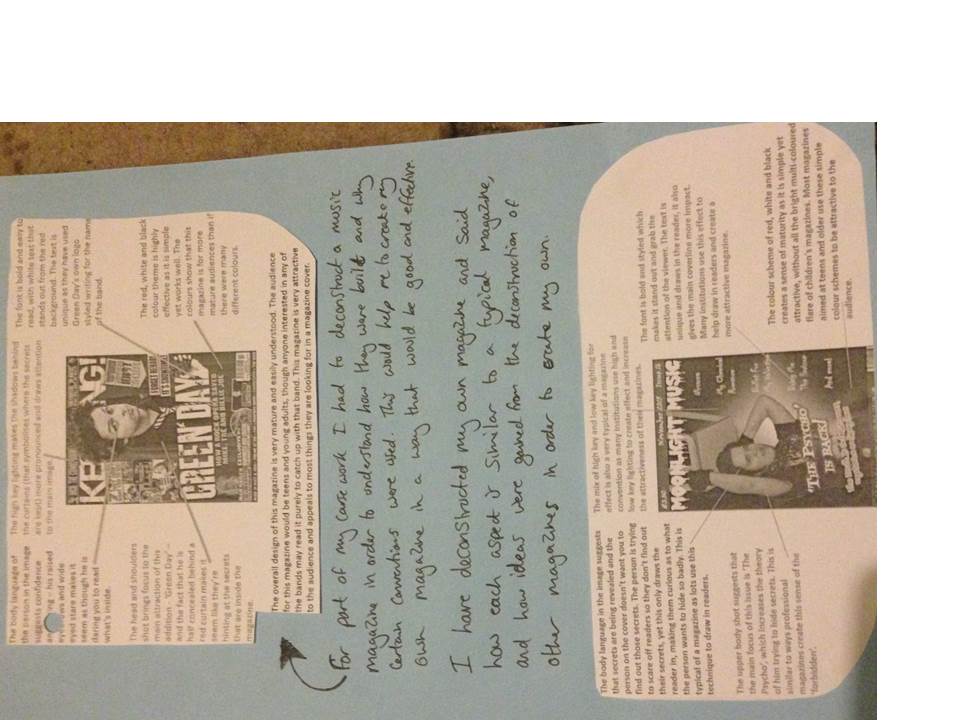 The body language of
the person in the image
suggests confidence
seeming - his raised
eyebrows and wide
eyed stare makes it
seem as though he is
daring you to read
what's inside.
The head and shoulders
shot brings focus to the
main attraction of this
addition – 'Green Day' –
and the fact that he is
half concealed behind a
red curtain makes it
seem like they're
hinting at the secrets
that are inside the
magazine.
The high key lighting makes the shadows behind
the curtains (that symbolises where the secrets
are kept) more pronounced and draws attention
to the main image.
KE
NG!
GREEN DAY
The font is bold and easy to
read, with white text that
stands out from the red
background. The text is
unique as they have used
Green Day's own logo
styled writing for the name
of the band.
The red, white and black
colour theme is highly
effective as it is simple
yet works well. The
colours show that this
magazine is for more
mature audiences than if
there were many
different colours.
The overall design of this magazine is very mature and easily understood. The audience
for this magazine would be teens and young adults, though anyone interested in any of
the bands may read it purely to catch up with that band. This magazine is very attractive
to the audience and appeals to most things they are looking for in a magazine cover.
For part of my course work I had to deconstruct a music
magazine in order to understand how they were built and why
certain conventions were used. This would help me to create my
own magazine in a way that would be good and effective.
I have deconstructed my own magazine and said
how each aspect is similar to a typical magazine,
and how ideas were gained from the deconstruction of
other magazines in order to create my own.
The body language in the image suggests
that secrets are being revealed and the
person on the cover doesn't want you to
find out those secrets. The person is trying
to scare off readers so they don't find out
their secrets, yet this only draws the
reader in, making them curious as to what
the person wants to hide so badly. This is
typical of a magazine as lots use this
technique to draw in readers.
The upper body shot suggests that the
the main focus of this issue is 'The
Psycho', which increases the theory
of him trying to hide secrets. This is
similar to ways professional
magazines create this sense of the
'forbidden'.
The mix of high key and low key lighting for
effect is also a very typical of a magazine
convention as many institutions use high and
low key lighting to create effect and increase
the attractiveness of their magazines.
MOONLIGHT MUSIC
'THE PSYCHO'
IS BACK!
And more!
The font is bold and styled which
makes it stand out and grab the
attention of the viewer. The text is
unique and draws in the reader, it also
gives the main coverline more impact.
Many institutions use this effect to
help draw in readers and create a
more attractive magazine.
The colour scheme of red, white and black
creates a sense of maturity as it is simple yet
attractive, without all the bright multi-coloured
flare of children's magazines. Most magazines
aimed at teens and older use these simple
colour schemes to be attractive to the
audience.